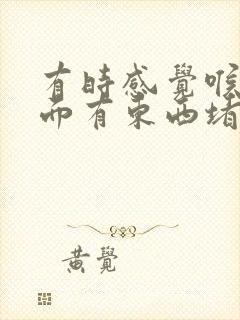 有時感覺喉
而有東西堵
黃覺